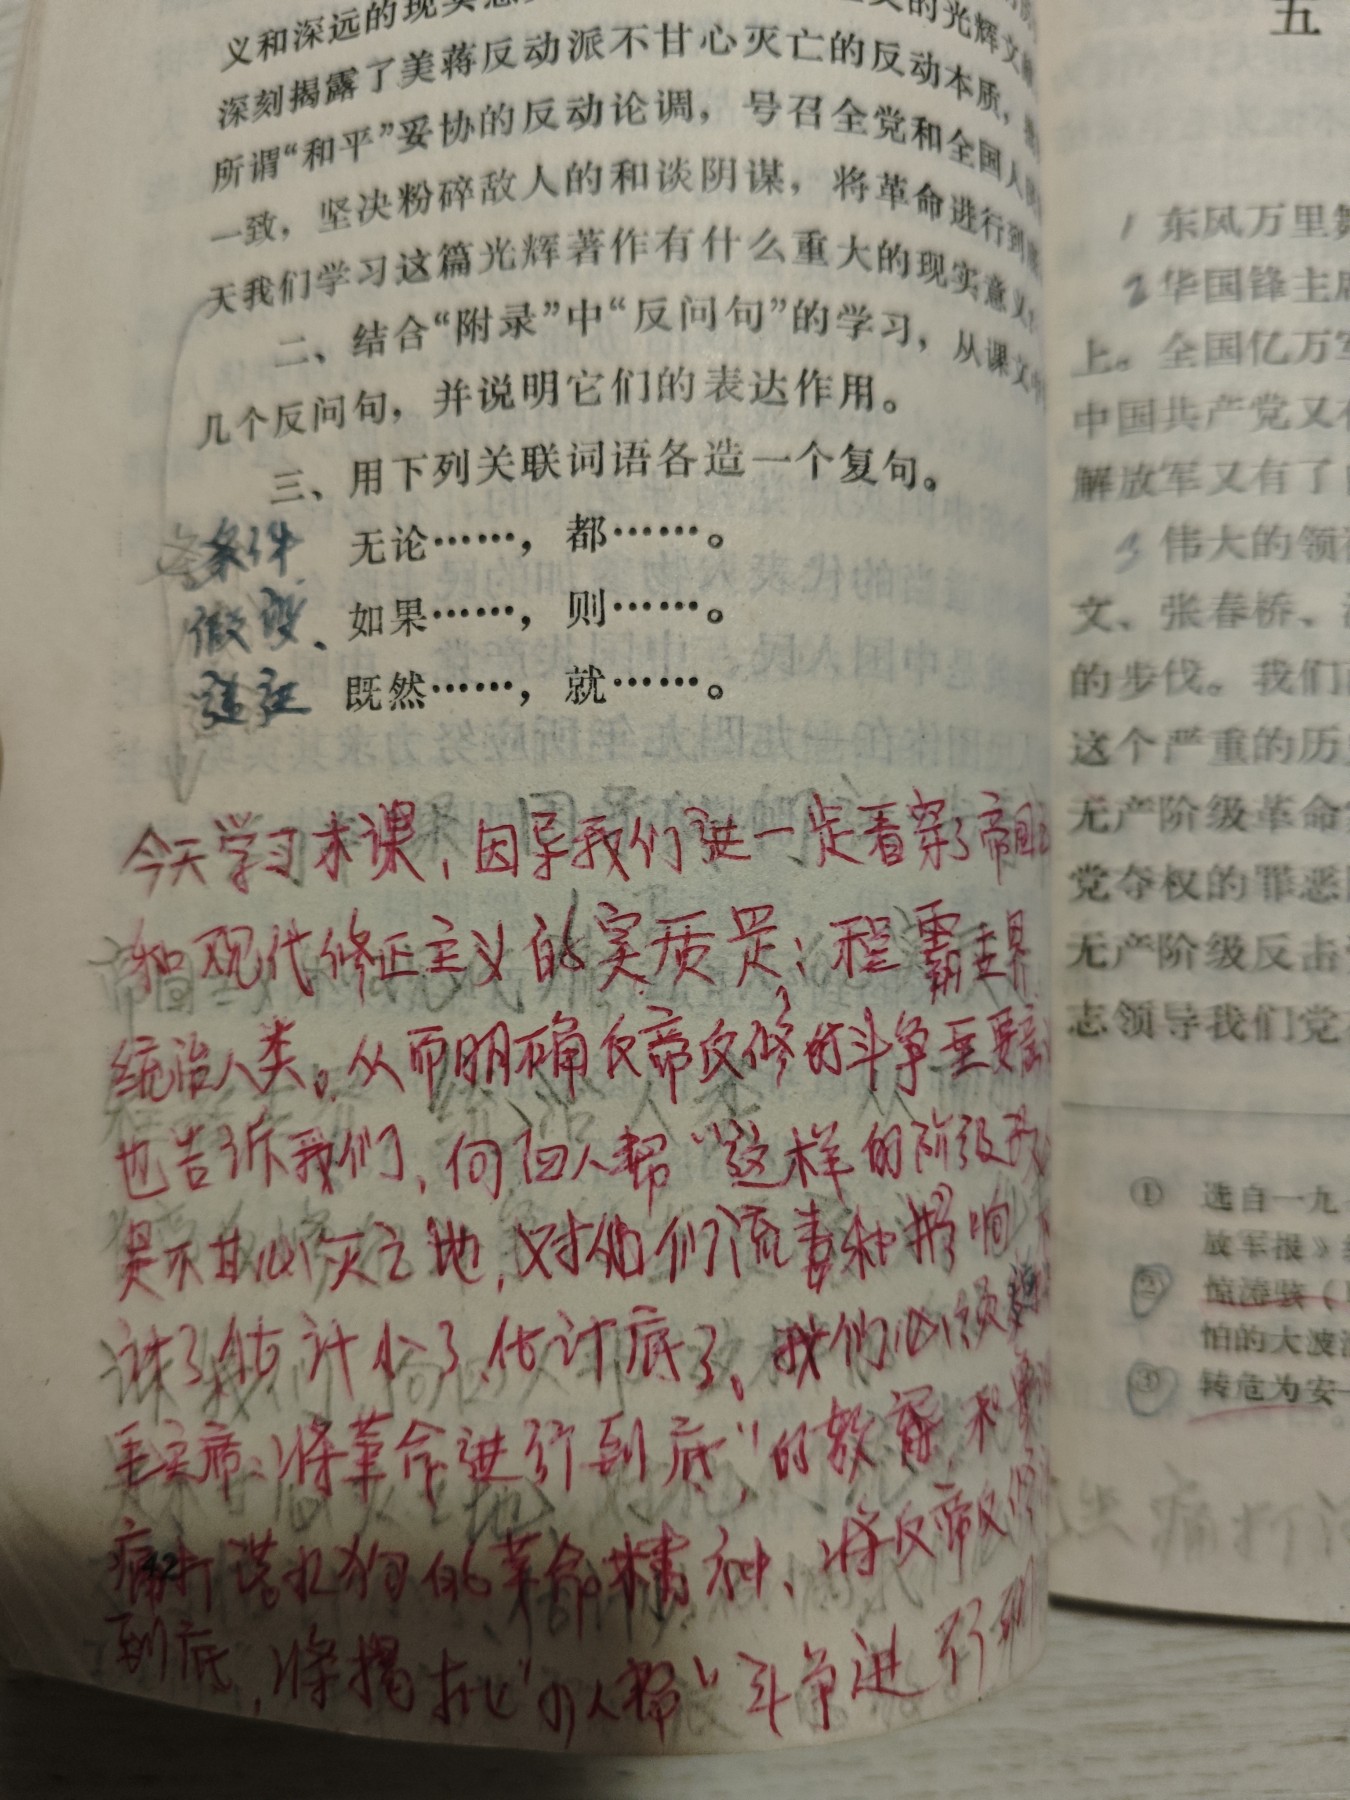 义和深远的现实意
的光辉文
深刻揭露了美蒋反动派不甘心灭亡的反动本质，
所谓“和平”妥协的反动论调，号召全党和全国人
一致，坚决粉碎敌人的和谈阴谋，将革命进行到
天我们学习这篇光辉著作有什么重大的现实意义
二、结合“附录”中“反问句”的学习，从课文中
几个反问句，并说明它们的表达作用。
三、用下列关联词语各造一个复句。
条件 无论……，都……。
假设、如果……，则……。
既然……，就……。
今天学习本课，因导我们进一步看穿了帝国
和现代修正主义的实质是：程霸世界
统治人类。从而明确反帝反修的斗争
也告诉我们，何四人帮“这样的阶级
是不甘心灭亡地，对他们流毒和影响
估计小了估计底了。我们必须
毛主席“将革命进行到底”的教导和
痛打落水狗的革命精神、将反帝反修
到底，将揭批“四人帮”斗争进行到
五
1 东风万里
2 华国锋主席
上。全国亿万军
中国共产党又有
解放军又有了
3 伟大的领
文、张春桥、
的步伐。我们
这个严重的历
无产阶级革命
党夺权的罪恶
无产阶级反击
志领导我们党
① 选自一九
放军报》
② 惊涛骇（
怕的大波
③ 转危为安
痛打